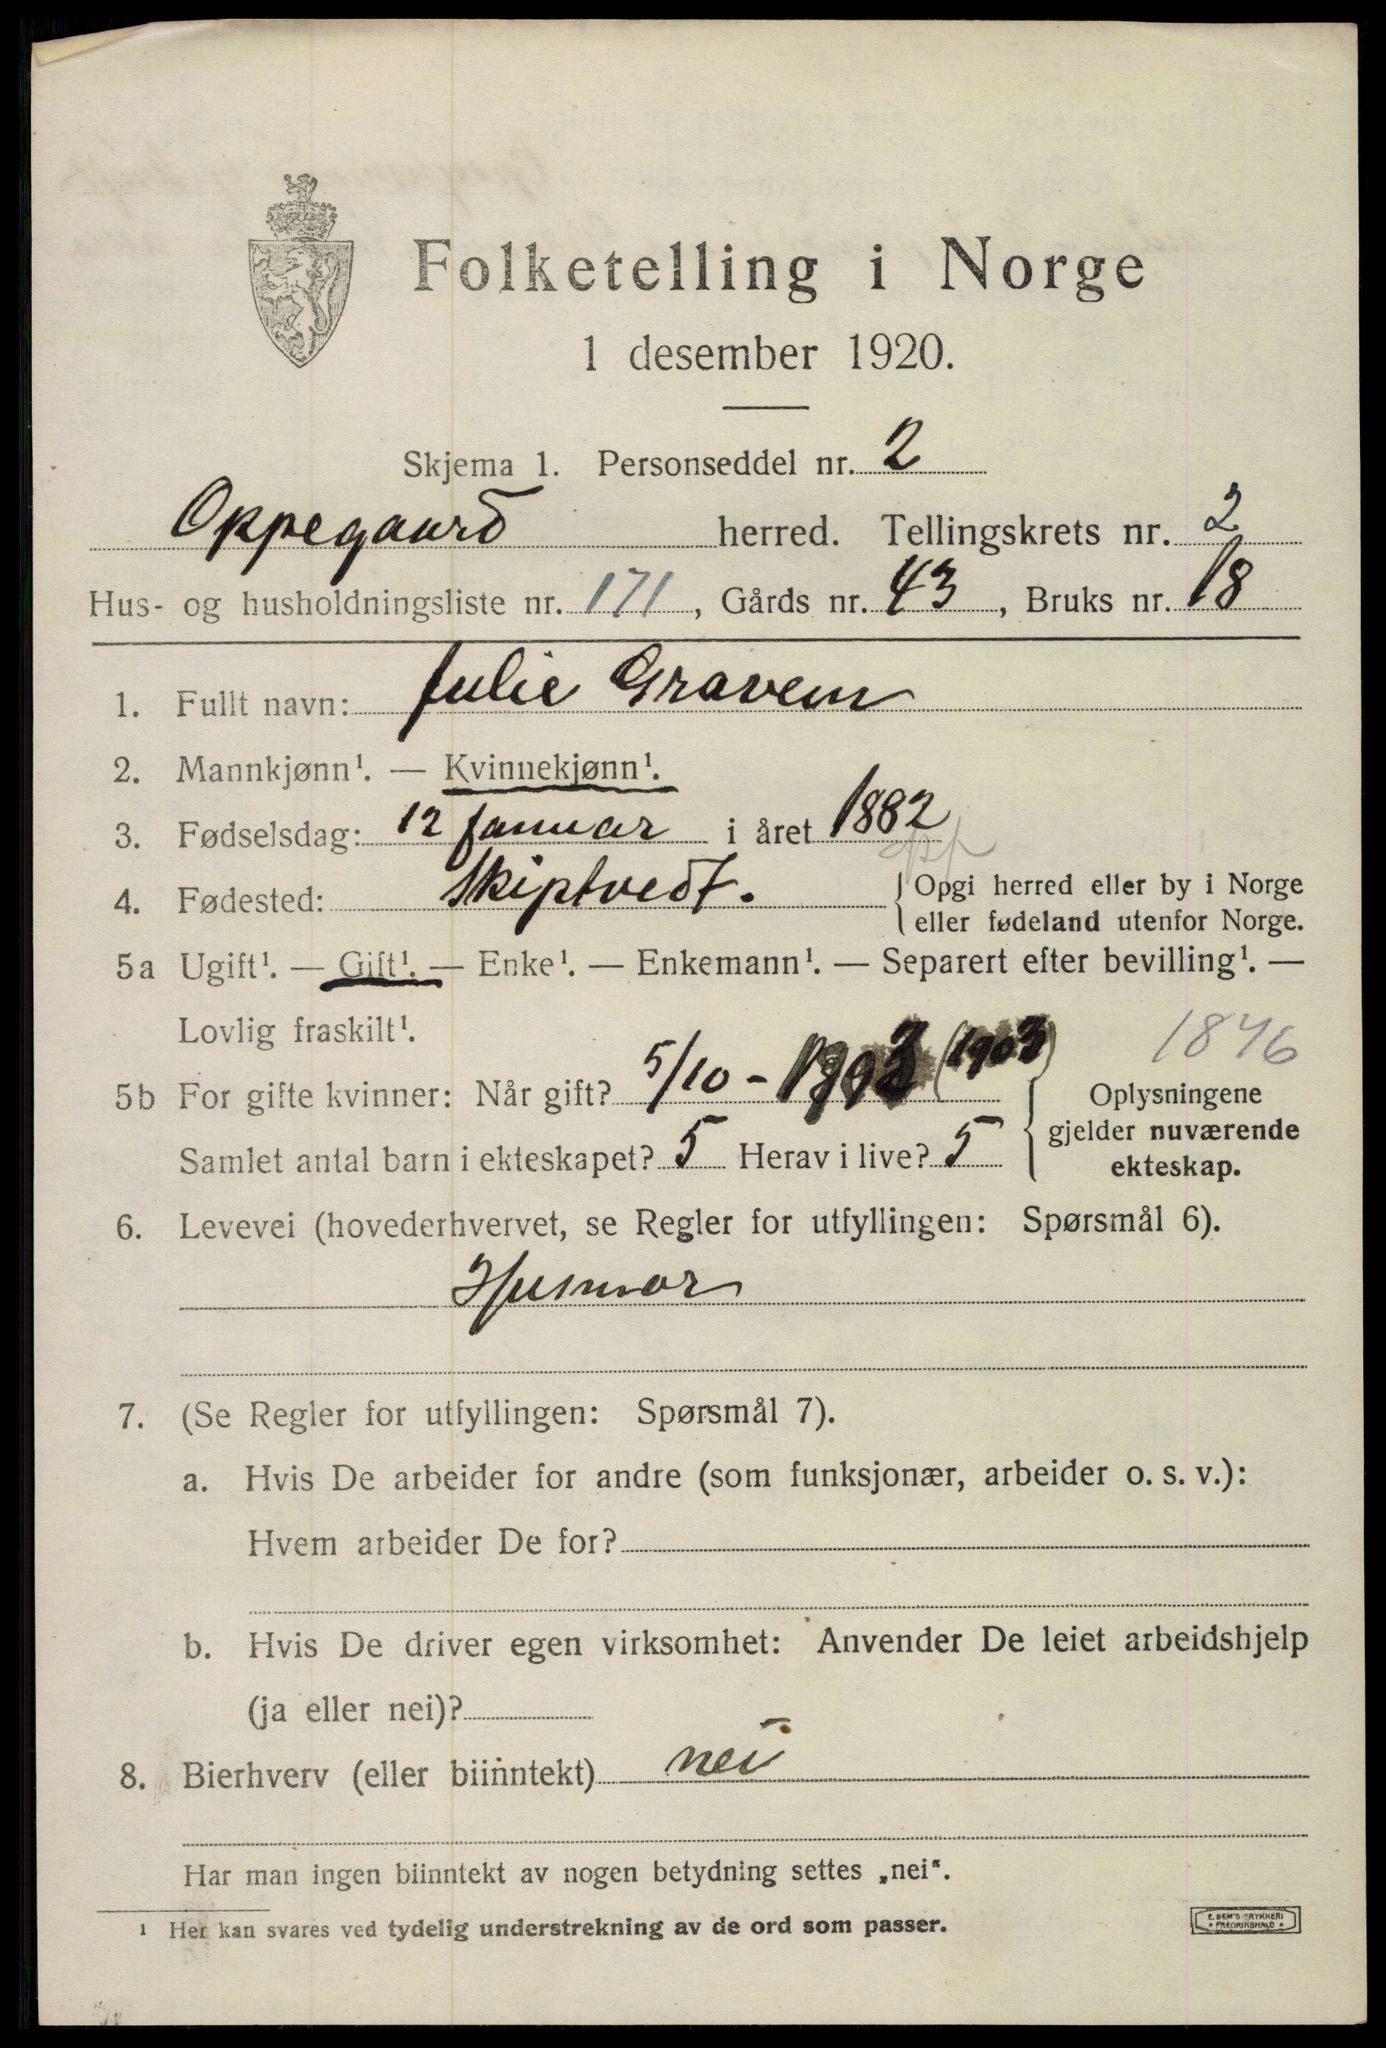 Folketelling i Norge
1 desember 1920.
Skjema 1. Personseddel nr. 2
Oppegaard herred. Tellingskrets nr. 2
Hus- og husholdningsliste nr. 171, Gårds nr. 43, Bruks nr. 18
1. Fullt navn: Julie Gravem
2. Mannkjønn¹. — Kvinnekjønn¹.
3. Fødselsdag: 12 januar i året 1882
4. Fødested: Skiptvedt. Opgi herred eller by i Norge
eller fødeland utenfor Norge.
5a Ugift¹. — Gift¹. — Enke¹. — Enkemann¹. — Separert efter bevilling¹. —
Lovlig fraskilt¹.
1846
5b For gifte kvinner: Når gift? 5/10 - 1903 (1903) Oplysningene
gjelder nuværende
Samlet antal barn i ekteskapet? 5 Herav i live? 5 ekteskap.
6. Levevei (hovederhvervet, se Regler for utfyllingen: Spørsmål 6).
Husmor
7. (Se Regler for utfyllingen: Spørsmål 7).
a. Hvis De arbeider for andre (som funksjonær, arbeider o. s. v.):
Hvem arbeider De for?
b. Hvis De driver egen virksomhet: Anvender De leiet arbeidshjelp
(ja eller nei)?
8. Bierhverv (eller biinntekt) nei
Har man ingen biinntekt av nogen betydning settes „nei“.
¹ Her kan svares ved tydelig understrekning av de ord som passer.
E. SEM'S TRYKKERI
* FREDRIKSHALD *